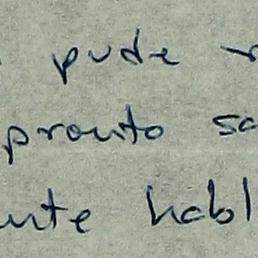 pude
pronto sa
nte habl